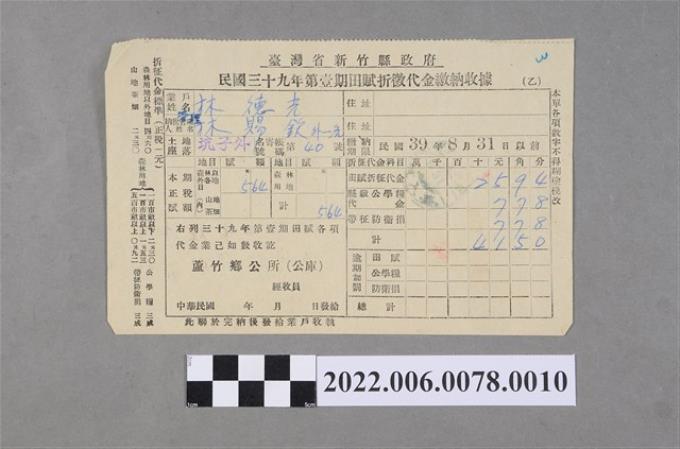 臺灣省新竹縣政府
民國三十九年第壹期田賦折徵代金繳納收據
(乙)
業戶姓名 林德光
納 管理人姓名 林賜欽 外一元
住址
住址
土地座落 坑子外
賦號 第40號
繳納期限 民國39年8月31日以前
本期正賦稅額
564
計 564
折徵代金科目 萬 千 百 十 元 角 分
田賦折征代金 2594
縣級公學糧代金 778
帶征防衛捐 778
計 4150
逾期罰
田賦
公學糧
防衛捐
總計
右列三十九年第壹期田賦各項
代金業已如數收訖
蘆竹鄉公所(公庫)
經收員
中華民國 年 月 日發給
此聯於完納後發給業戶收執
本單各項數字不得糊塗改
折征代金標準(正稅一元)
森林用地以外地目 四.六〇
山地茶畑 二.三〇
森林用地
公學糧 三成
帶征防衛捐 三成
2022.006.0078.0010